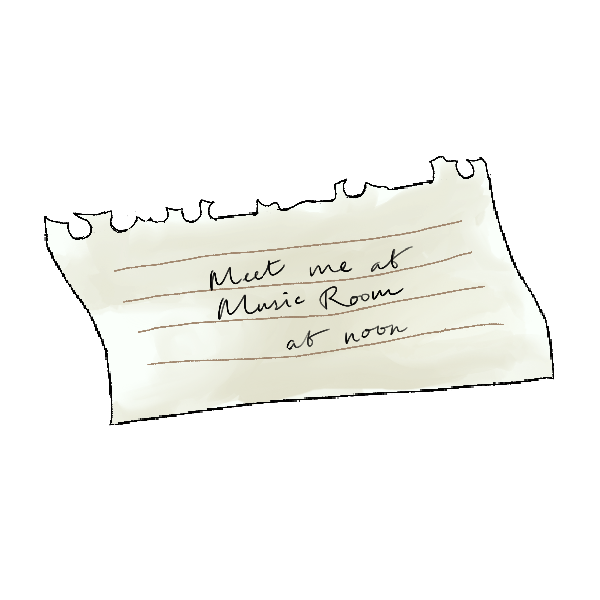 Meet me at
Music Room
at noon